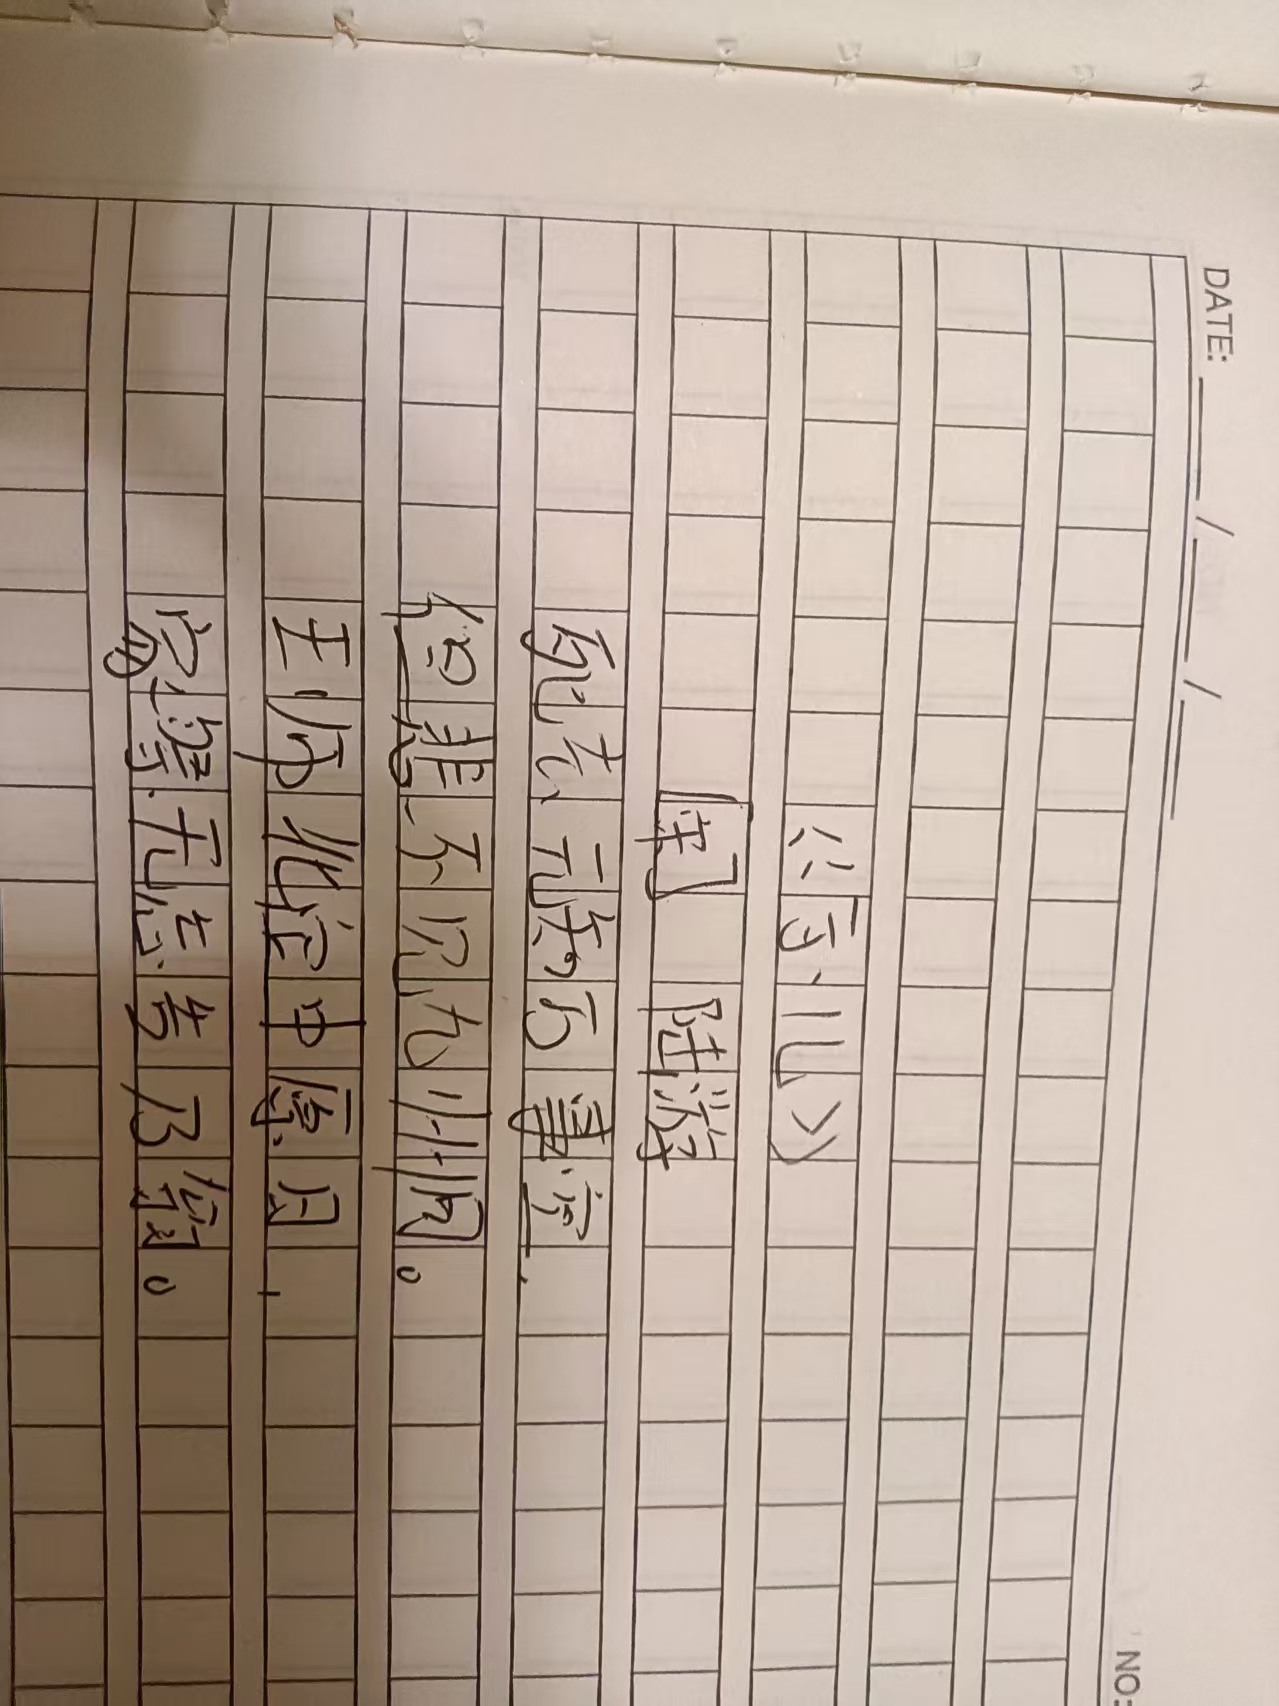 DATE: / / NO:
《示儿》
[宋] 陆游
死去元知万事空,
但悲不见九州同。
王师北定中原日,
家祭无忘告乃翁。